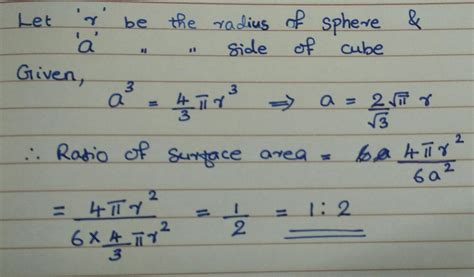 Let 'r' be the radius of sphere &
'a' " " side of cube
Given,
a³ = 4/3 πr³ ⇒ a = 2√π/√3 r
∴ Ratio of surface area = 4πr²/6a²
= 4πr²/(6×4/3 πr²) = 1/2 = 1:2